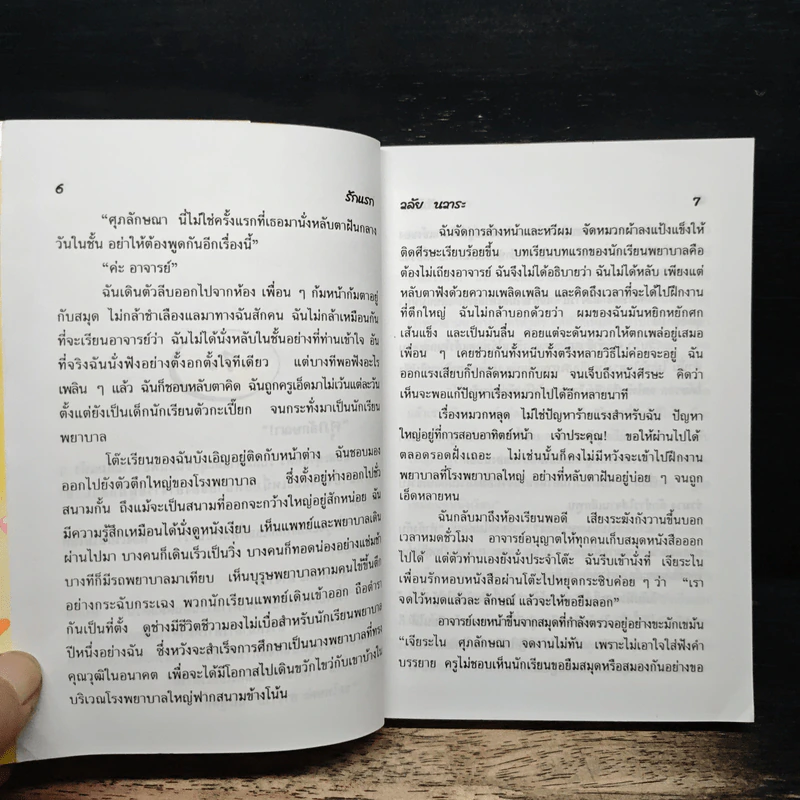 6
รักแรก
“ศุภลักษณา นี่ไม่ใช่ครั้งแรกที่เธอมานั่งหลับตาฝันกลาง
วันในชั้น อย่าให้ต้องพูดกันอีกเรื่องนี้”
“ค่ะ อาจารย์”
ฉันเดินตัวลีบออกไปจากห้อง เพื่อน ๆ ก้มหน้าก้มตาอยู่
กับสมุด ไม่กล้าชำเลืองแลมาทางฉันสักคน ฉันไม่กล้าเหมือนกัน
ที่จะเรียนอาจารย์ว่า ฉันไม่ได้นั่งหลับในชั้นอย่างที่ท่านเข้าใจ อัน
ที่จริงฉันนั่งฟังอย่างตั้งอกตั้งใจทีเดียว แต่บางทีพอฟังอะไร
เพลิน ๆ แล้ว ฉันก็ชอบหลับตาคิด ฉันถูกครูเอ็ดมาไม่เว้นแต่ละวัน
ตั้งแต่ยังเป็นเด็กนักเรียนตัวกะเปี๊ยก จนกระทั่งมาเป็นนักเรียน
พยาบาล
โต๊ะเรียนของฉันบังเอิญอยู่ติดกับหน้าต่าง ฉันชอบมอง
ออกไปยังตัวตึกใหญ่ของโรงพยาบาล ซึ่งตั้งอยู่ห่างออกไปชั่ว
สนามกั้น ถึงแม้จะเป็นสนามที่ออกจะกว้างใหญ่อยู่สักหน่อย ฉัน
มีความรู้สึกเหมือนได้นั่งดูหนังเงียบ เห็นแพทย์และพยาบาลเดิน
ผ่านไปมา บางคนก็เดินเร็วเป็นวิ่ง บางคนก็ทอดน่องอย่างแช่มช้า
บางทีก็มีรถพยาบาลมาเทียบ เห็นบุรุษพยาบาลหามคนไข้ขึ้นตึก
อย่างกระฉับกระเฉง พวกนักเรียนแพทย์เดินเข้าออก ถือตำรา
กันเป็นที่ตั้ง ดูช่างมีชีวิตชีวามองไม่เบื่อสำหรับนักเรียนพยาบาล
ปีหนึ่งอย่างฉัน ซึ่งหวังจะสำเร็จการศึกษาเป็นนางพยาบาลที่ทรง
คุณวุฒิในอนาคต เพื่อจะได้มีโอกาสไปเดินขวักไขว่กับเขาบ้างใน
บริเวณโรงพยาบาลใหญ่ฟากสนามข้างโน้น
วลัย นวาระ
7
ฉันจัดการล้างหน้าและหวีผม จัดหมวกผ้าลงแป้งแข็งให้
ติดศีรษะเรียบร้อยขึ้น บทเรียนบทแรกของนักเรียนพยาบาลคือ
ต้องไม่เถียงอาจารย์ ฉันจึงไม่ได้อธิบายว่า ฉันไม่ได้หลับ เพียงแต่
หลับตาฟังด้วยความเพลิดเพลิน และคิดถึงเวลาที่จะได้ไปฝึกงาน
ที่ตึกใหญ่ ฉันไม่กล้าบอกด้วยว่า ผมของฉันมันหยิกหยักศก
เส้นแข็ง และเป็นมันลื่น คอยแต่จะดันหมวกให้ตกเพล่อยู่เสมอ
เพื่อน ๆ เคยช่วยกันทั้งหนีบทั้งตรึงหลายวิธีไม่ค่อยจะอยู่ ฉัน
ออกแรงเสียบกิ๊ปกลัดหมวกกับผม จนเจ็บถึงหนังศีรษะ คิดว่า
เห็นจะพอแก้ปัญหาเรื่องหมวกไปได้อีกหลายนาที
เรื่องหมวกหลุด ไม่ใช่ปัญหาร้ายแรงสำหรับฉัน ปัญหา
ใหญ่อยู่ที่การสอบอาทิตย์หน้า เจ้าประคุณ! ขอให้ผ่านไปได้
ตลอดรอดฝั่งเถอะ ไม่เช่นนั้นก็คงไม่มีหวังจะเข้าไปฝึกงาน
พยาบาลที่โรงพยาบาลใหญ่ อย่างที่หลับตาฝันอยู่บ่อย ๆ จนถูก
เอ็ดหลายหน
ฉันกลับมาถึงห้องเรียนพอดี เสียงระฆังกังวานขึ้นบอก
เวลาหมดชั่วโมง อาจารย์อนุญาตให้ทุกคนเก็บสมุดหนังสือออก
ไปได้ แต่ตัวท่านเองยังนั่งประจำโต๊ะ ฉันรีบเข้านั่งที่ เจียระไน
เพื่อนรักหอบหนังสือผ่านโต๊ะไปหยุดกระซิบค่อย ๆ ว่า “เรา
จดไว้หมดแล้วละ ลักษณ์ แล้วจะให้ขอยืมลอก”
อาจารย์เงยหน้าขึ้นจากสมุดที่กำลังตรวจอยู่อย่างขะมักเขม้น
“เจียระไน ศุภลักษณา จดงานไม่ทัน เพราะไม่เอาใจใส่ฟังคำ
บรรยาย ครูไม่ชอบเห็นนักเรียนขอยืมสมุดหรือสมองกันอย่างขอ